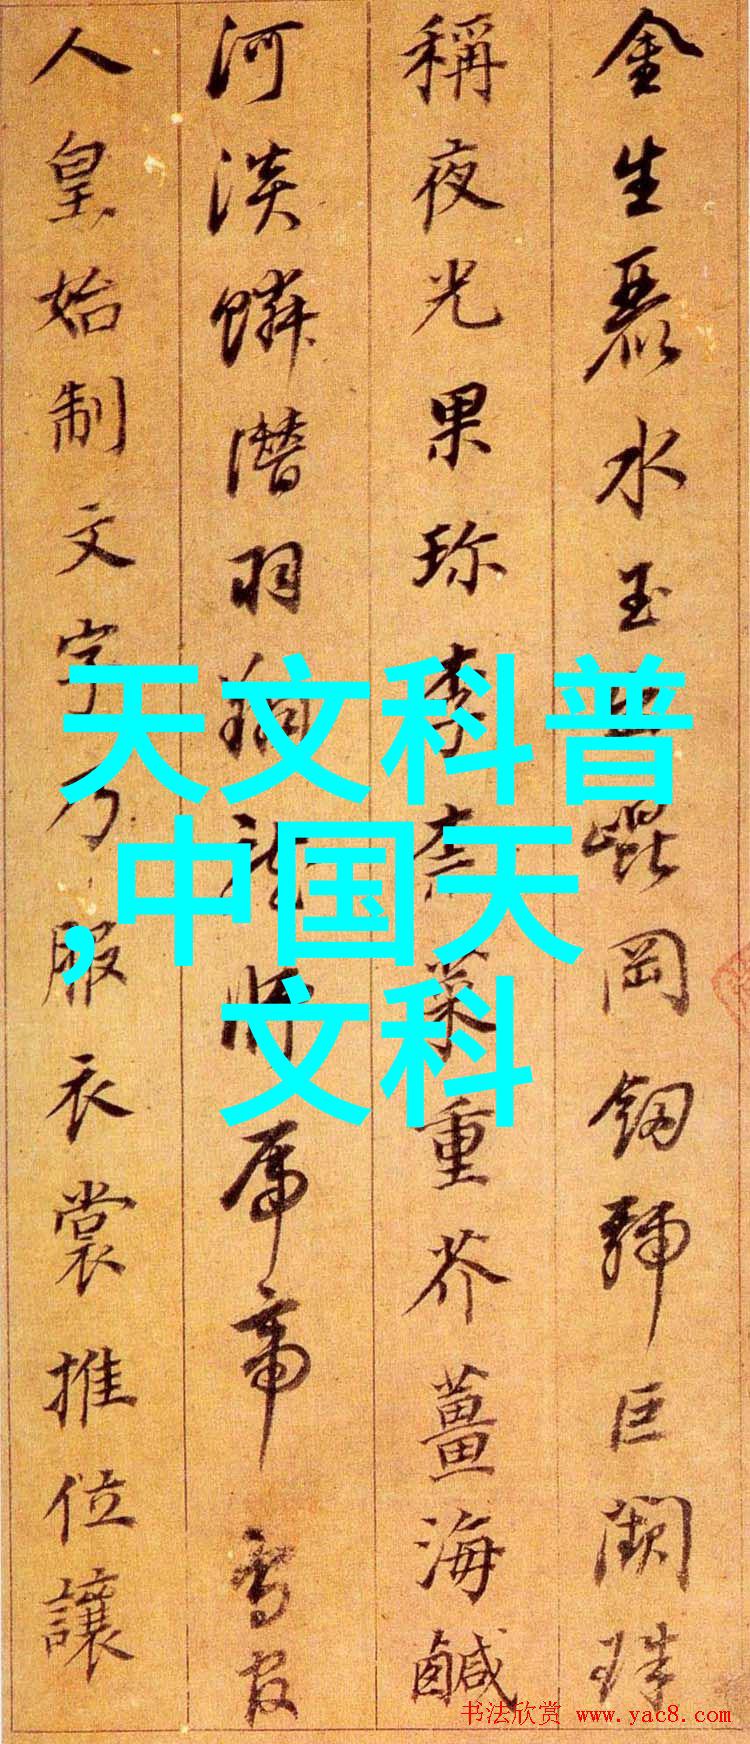 金生麗水玉出崐岡劒號巨闕珠
稱夜光果珎李柰菜重芥薑海鹹
河淡鱗潛羽翔龍師火帝鳥官
人皇始制文字乃服衣裳推位讓
天文科普
,中国天
文科
书法欣赏 www.yac8.com